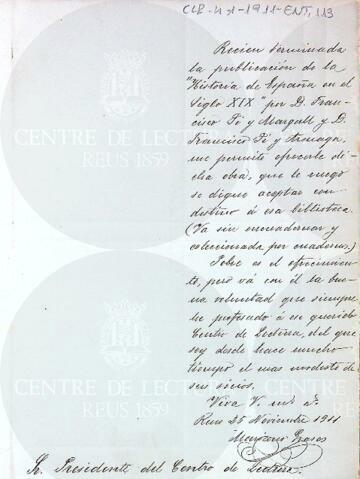 CLR-U1-1911-ENT,113
Recien terminada
la publicación de la
"Historia de España en el
Siglo XIX" por D. Fran-
cisco Pi y Margall y D.
Francisco Pi y Arsuaga,
me permito ofrecerle di-
cha obra, que le ruego
se digne aceptar con
destino á esa biblioteca
(Va sin encuadernar y
coleccionada por cuadernos.)
Pobre es el ofrecimien-
to, pero vá con él la bue-
na voluntad que siempre
he profesado á su querido
Centro de Lectura, del que
soy desde hace mucho
tiempo el mas modesto de
sus socios.
Viva V. m.s a.s
Reus 25 Noviembre 1911
Grasas
Sr. Presidente del Centro de Lectura.
CENTRE DE LECTURA
REUS 1859
CENTRE DE LECTURA
REUS 1859